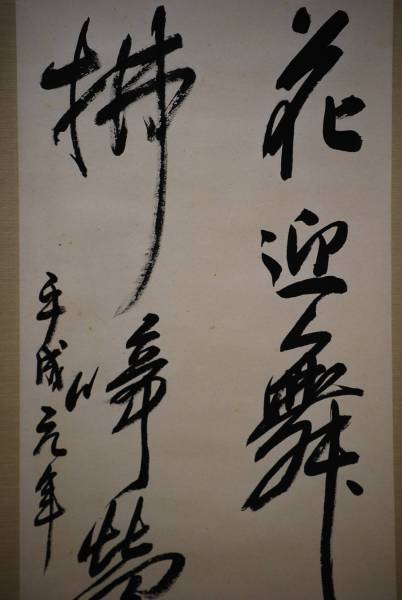 花迎舞
拂啼鶯
平成元年